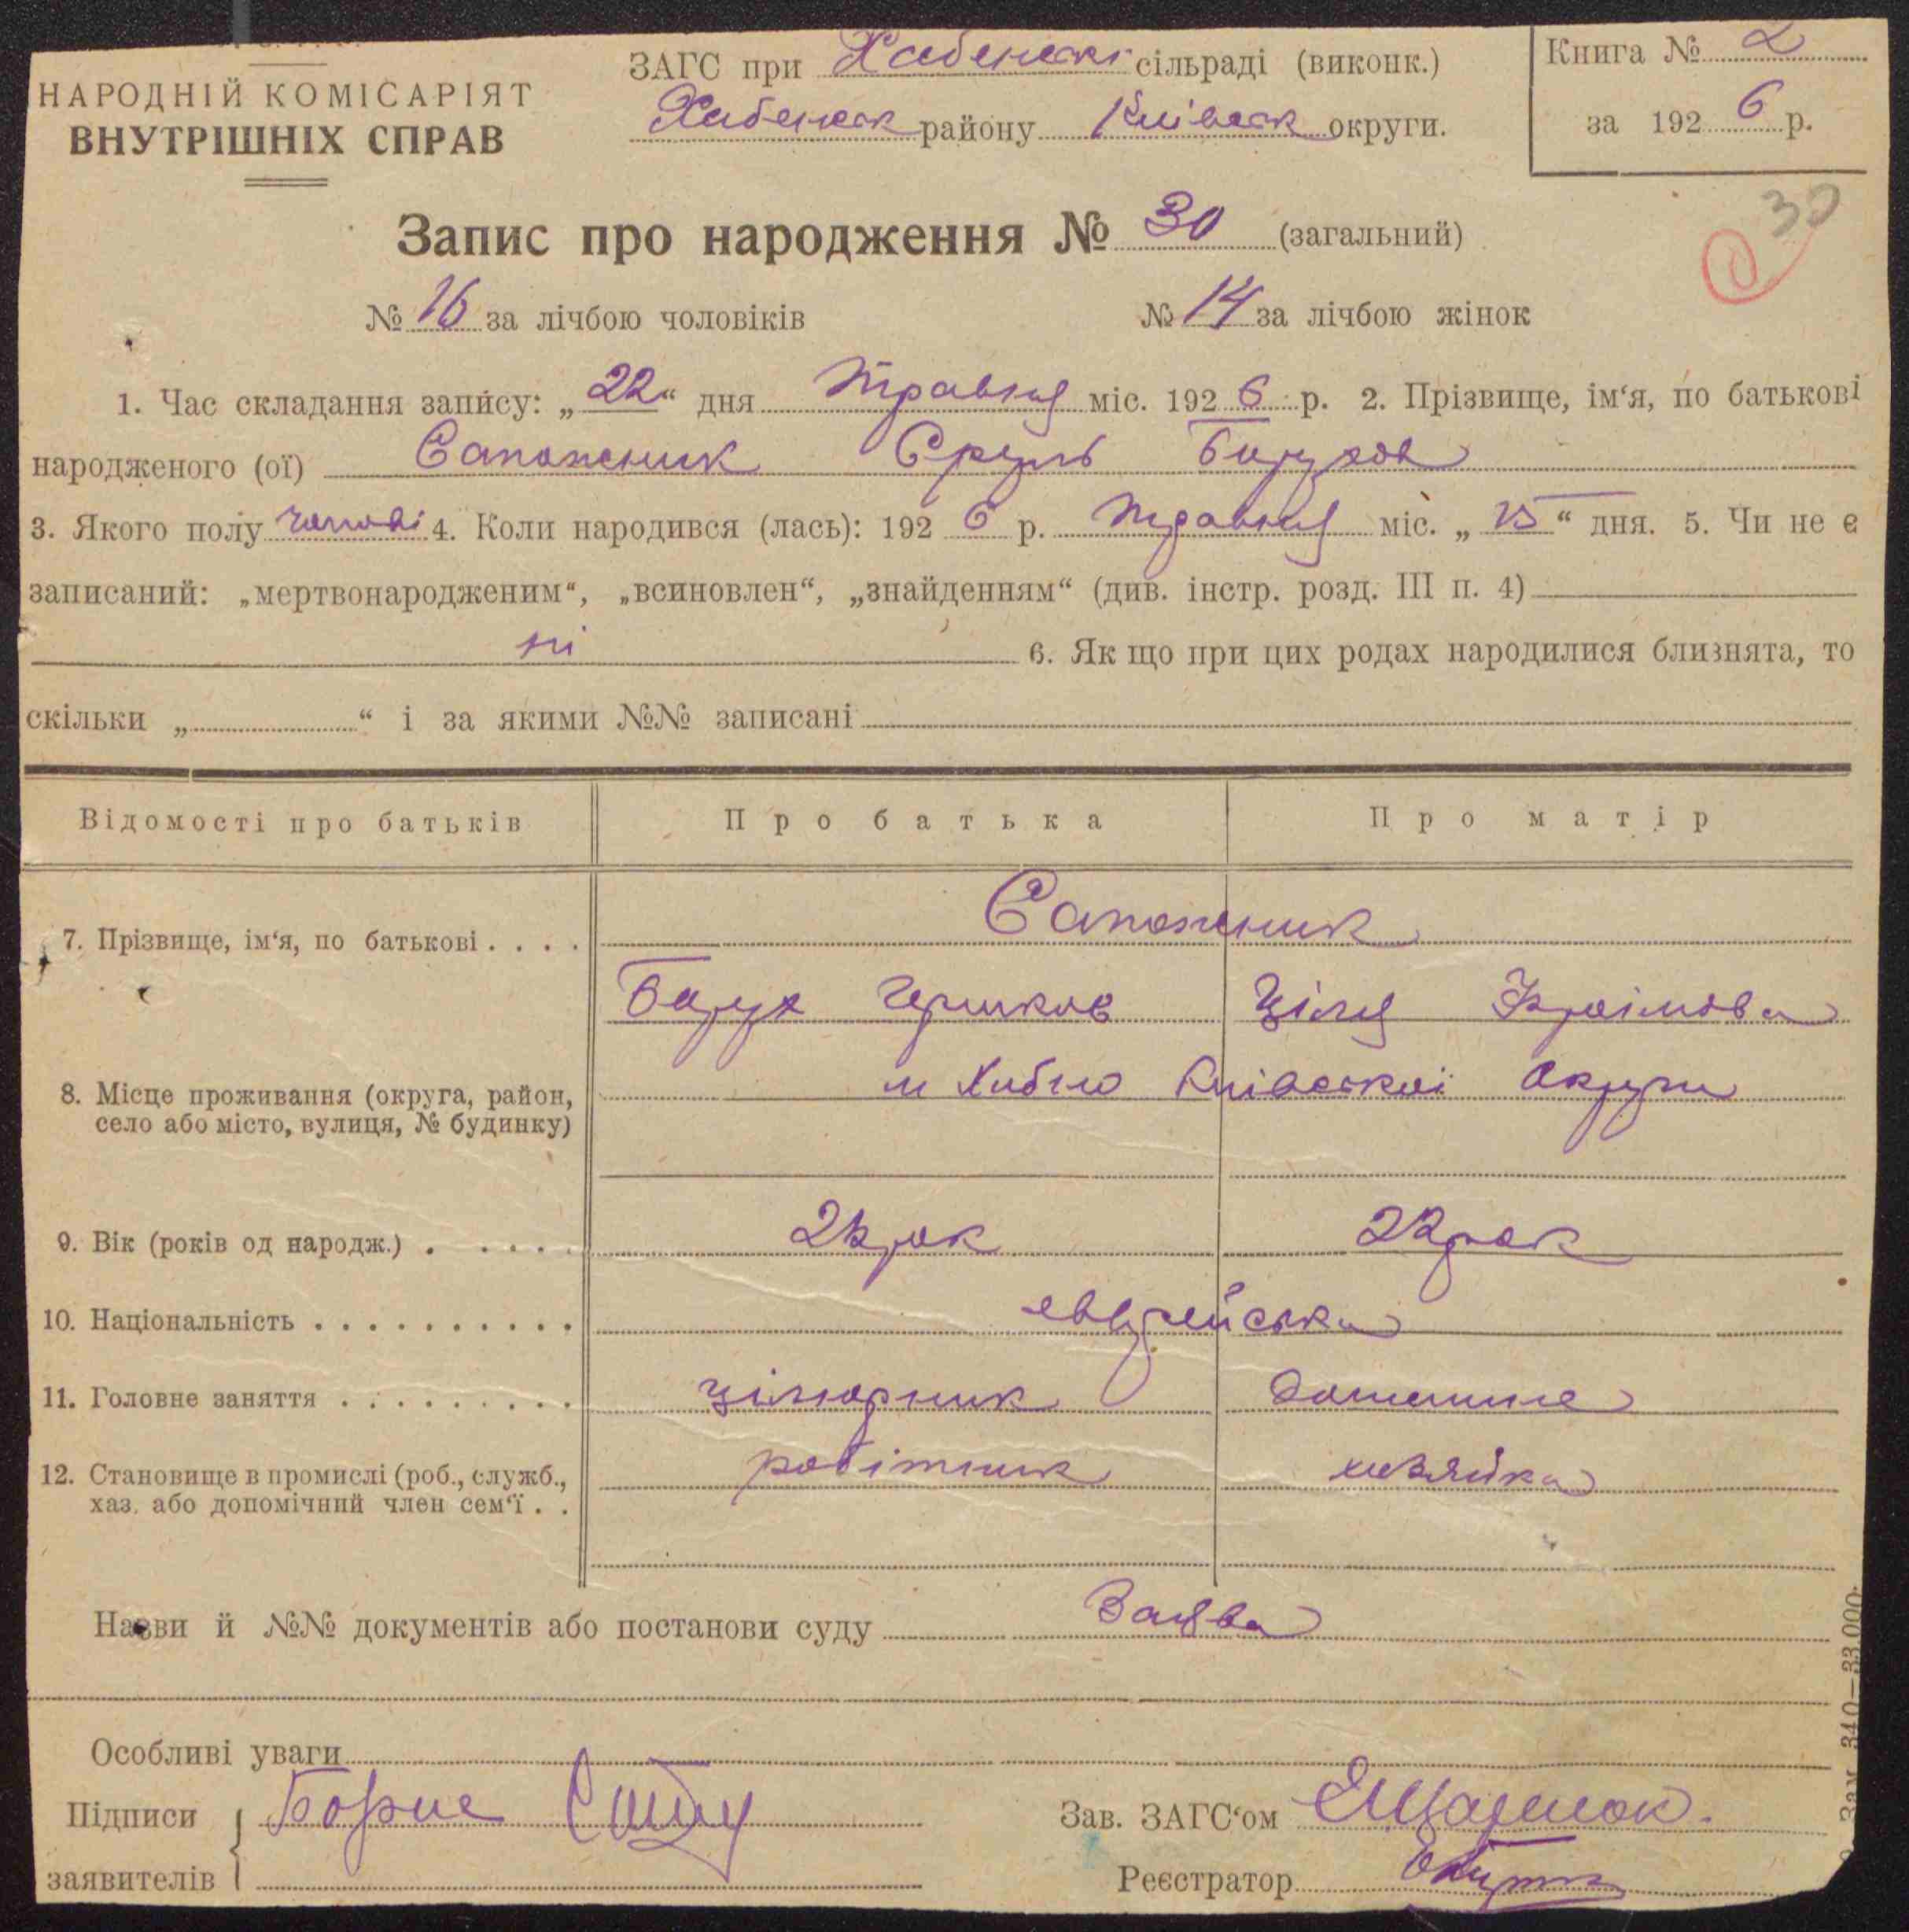 ЗАГС при Хабенскі сільраді (виконк.)
Книга № 2
НАРОДНІЙ КОМІСАРІЯТ
ВНУТРІШНІХ СПРАВ
Хабенск району Київск округи.
за 1926 р.
Запис про народження № 30 (загальний)
30
№ 16 за лічбою чоловіків № 14 за лічбою жінок
1. Час складання запису: „22“ дня Травня міс. 1926 р. 2. Прізвище, ім‘я, по батькові
народженого (ої) Сапожник Сруль Барухов
3. Якого полу чолові 4. Коли народився (лась): 1926 р. Травня міс. „15“ дня. 5. Чи не є
записаний: „мертвонародженим“, „всиновлен“, „знайденням“ (див. інстр. розд. III п. 4)
ні 6. Як що при цих родах народилися близнята, то
скільки „ “ і за якими №№ записані
Відомості про батьків Про батька Про матір
7. Прізвище, ім‘я, по батькові . . . . Сапожник
Барух Гершков Ціля Храімова
8. Місце проживання (округа, район, м Хабно Київської Округи
село або місто, вулиця, № будинку)
9. Вік (років од народж.) . . . . . рок 22 рок
10. Національність . . . . . . . . . . . еврейська
11. Головне заняття . . . . . . . . . цілюрник домашнє
12. Становище в промислі (роб., служб., робітник хазяйка
хаз. або допомічний член сем‘ї . .
Назви й №№ документів або постанови суду Заява
Особливі уваги
Підписи Борис
Зав. ЗАГС‘ом
заявителів
Реєстратор
Зам. 340—33.000.